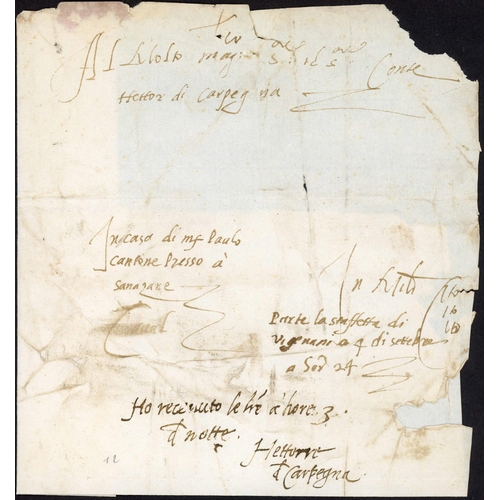 Al Molto mag:co S:or il S:or Conte
Hettor di Carpegna
In casa di mf Paulo
Cantone Presso à
In
Parte la staffetta di
a 4 di settebre
a hor 24
Ho receputo le hre à hore 3.
d notte.
Hettorre
d Carpegna
12